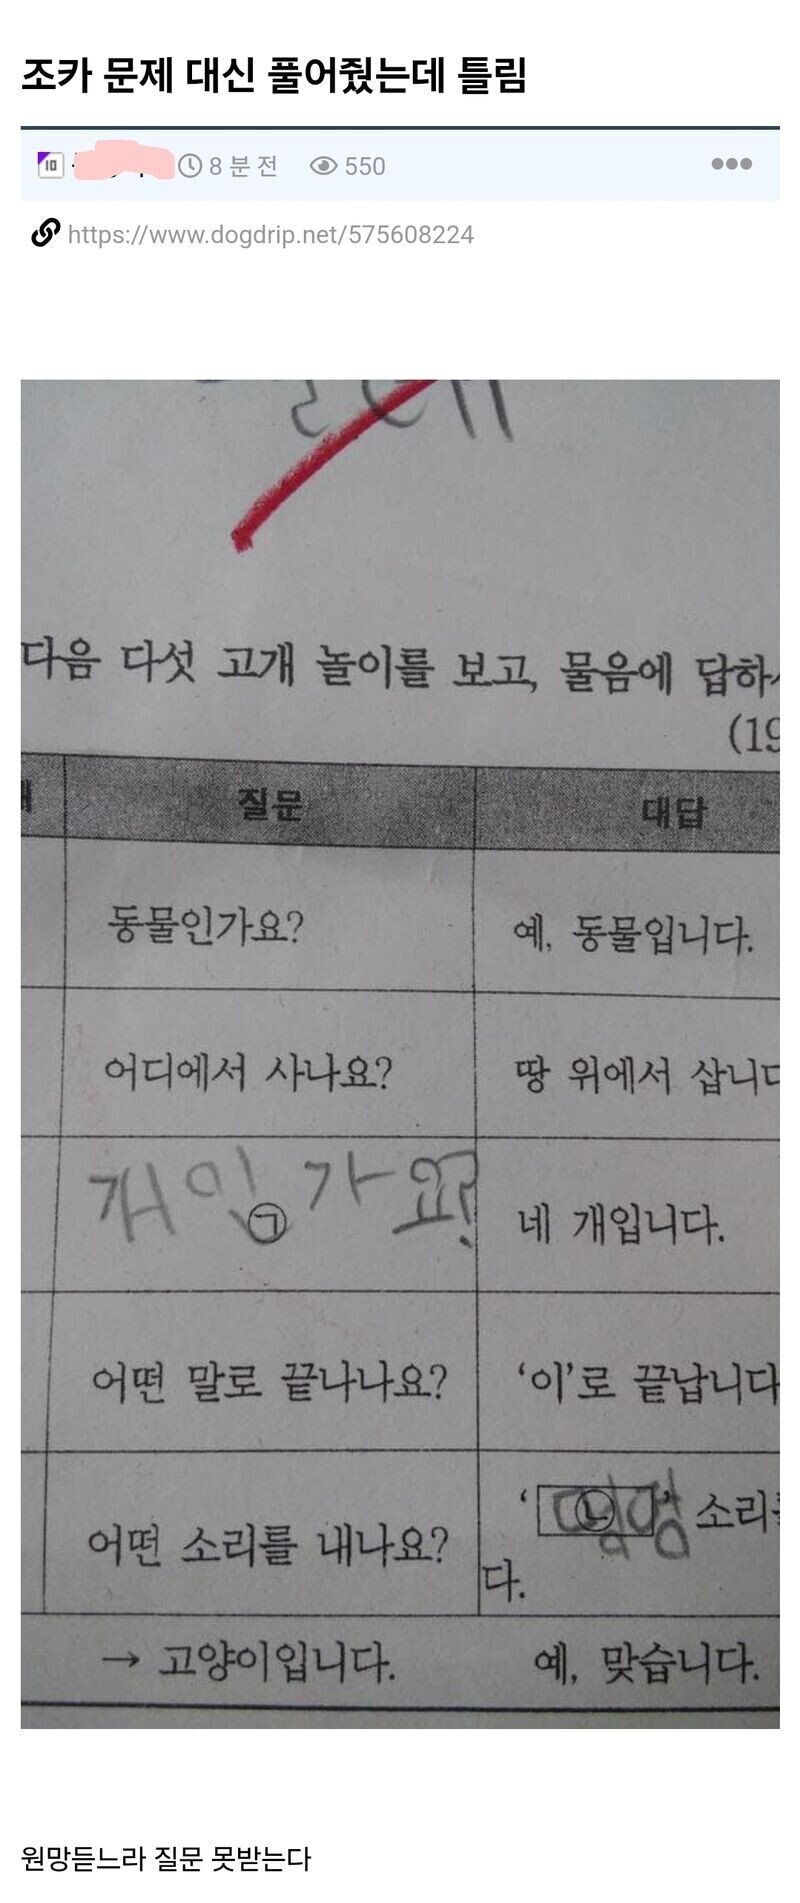 조카 문제 대신 풀어줬는데 틀림
10
8 분 전 550
https://www.dogdrip.net/575608224
다음 다섯 고개 놀이를 보고, 물음에 답하
(19
질문 대답
동물인가요? 예, 동물입니다.
어디에서 사나요? 땅 위에서 삽니다
개인가요? ㉠ 네 개입니다.
어떤 말로 끝나나요? ‘이’로 끝납니다
어떤 소리를 내나요? ‘㉡’ 소리를
다.
→ 고양이입니다. 예, 맞습니다.
원망듣느라 질문 못받는다